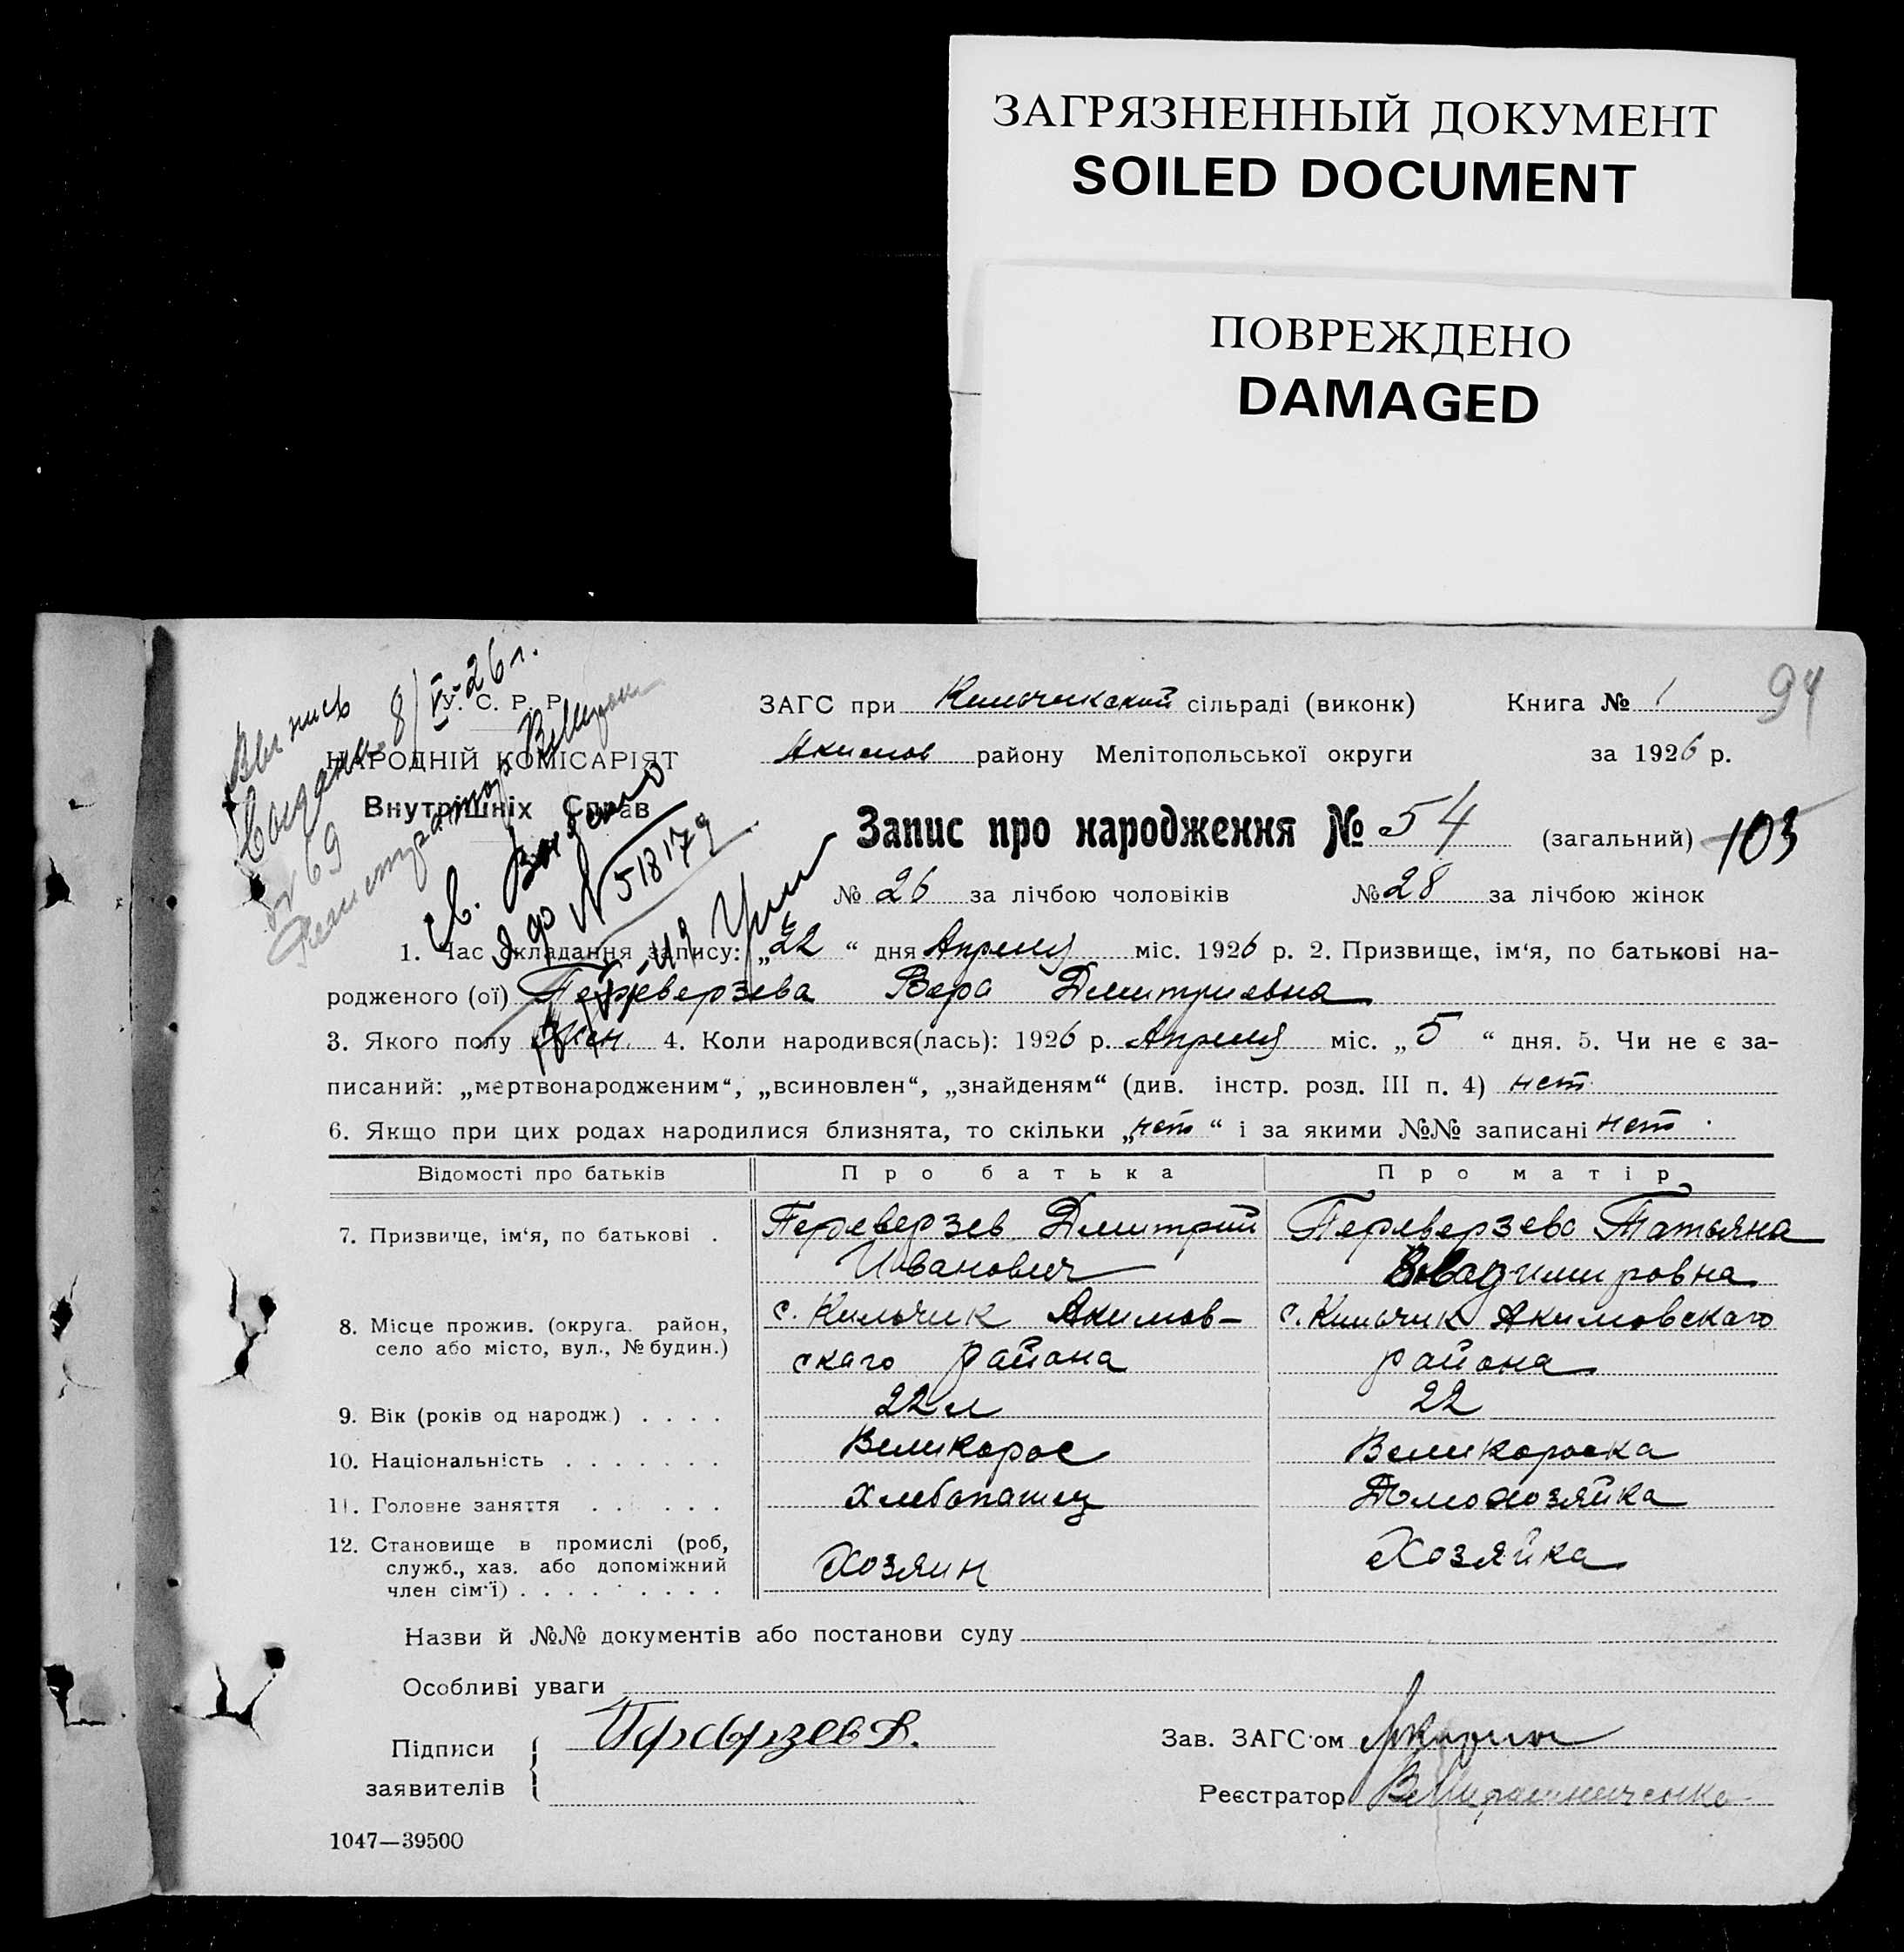 ЗАГРЯЗНЕННЫЙ ДОКУМЕНТ
SOILED DOCUMENT
ПОВРЕЖДЕНО
DAMAGED
94
Выпись
8/VI-26 г.
69
518179
У. С. Р. Р.
НАРОДНІЙ КОМІСАРІЯТ
Внутрішніх Справ
ЗАГС при Кильчикской сільраді (виконк) Книга № 1
Акимов району Мелітопольської округи за 1926 р.
Запис про народження № 54 (загальний) 103
№ 26 за лічбою чоловіків № 28 за лічбою жінок
1. Час складання запису: „22“ дня Апреля міс. 1926 р. 2. Призвище, ім‘я, по батькові на-
родженого (ої) Переверзева Вера Дмитриевна
3. Якого полу жен. 4. Коли народився(лась): 1926 р. Апреля міс. „5“ дня. 5. Чи не є за-
писаний: „мертвонародженим“, „всиновлен“, „знайденям“ (див. інстр. розд. III п. 4) нет
6. Якщо при цих родах народилися близнята, то скільки „нет“ і за якими №№ записані нет
Відомості про батьків Про батька Про матір
7. Призвище, ім‘я, по батькові . Переверзев Дмитрий Переверзева Татьяна
Иванович Владимировна
8. Місце прожив. (округа. район, с. Кильчик Акимов- с. Кильчик Акимовскаго
село або місто, вул., № будин.) скаго района района
9. Вік (років од народж.) . . . . 22 л 22
10. Національність . . . . . . . Великорос Великороска
11. Головне заняття . . . . . . Хлебопашец Домохозяйка
12. Становище в промислі (роб,
служб., хаз. або допоміжний Хозяин Хозяйка
член сім‘ї) . . . . . . . . .
Назви й №№ документів або постанови суду
Особливі уваги
Підписи
заявителів
Зав. ЗАГС‘ом
Реєстратор
1047—39500